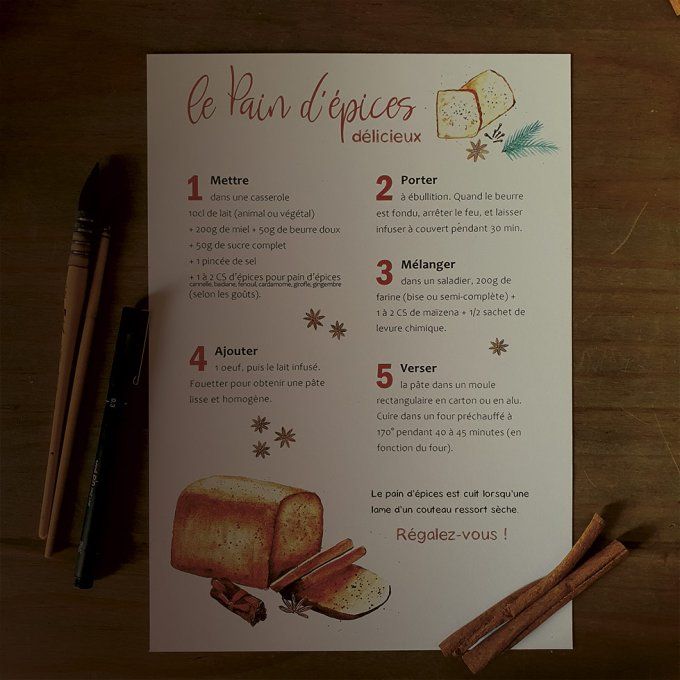 le Pain d'épices
délicieux
1 Mettre
dans une casserole
10cl de lait (animal ou végétal)
+ 200g de miel + 50g de beurre doux
+ 50g de sucre complet
+ 1 pincée de sel
+ 1 à 2 CS d'épices pour pain d'épices
cannelle, badiane, fenouil, cardamome, girofle, gingembre
(selon les goûts).
2 Porter
à ébullition. Quand le beurre
est fondu, arrêter le feu, et laisser
infuser à couvert pendant 30 min.
3 Mélanger
dans un saladier, 200g de
farine (bise ou semi-complète) +
1 à 2 CS de maïzena + 1/2 sachet de
levure chimique.
4 Ajouter
1 oeuf, puis le lait infusé.
Fouetter pour obtenir une pâte
lisse et homogène.
5 Verser
la pâte dans un moule
rectangulaire en carton ou en alu.
Cuire dans un four préchauffé à
170° pendant 40 à 45 minutes (en
fonction du four).
Le pain d'épices est cuit lorsqu'une
lame d'un couteau ressort sèche.
Régalez-vous !